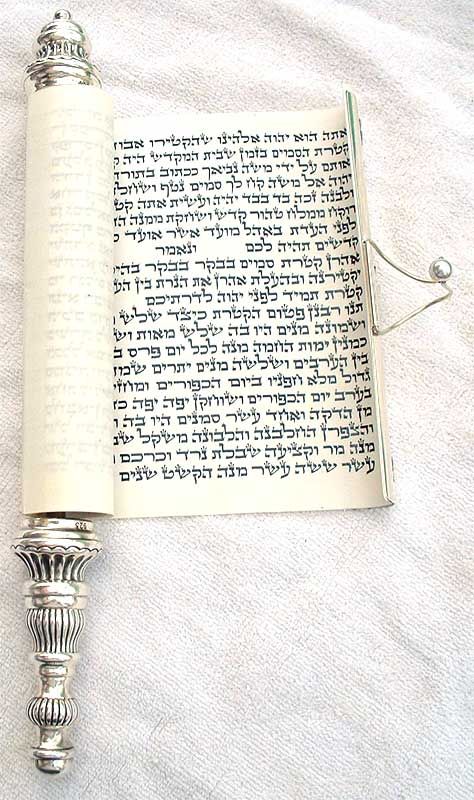 אתה הוא יהוה אלהינו שהקטירו
קטרת הסמים בזמן שבית המקדש היה
אותם על ידי משה נביאך ככתוב
יהוה אל משה קח לך סמים נטף
ולבנה זכה בד בבד יהיה ועשית אתה
רוקח ממולח טהור קדש ושחקת ממנה
לפני העדת באהל מועד אשר אועד
קדשים תהיה לכם ונאמר
אהרן קטרת סמים בבקר בבקר
יקטירנה ובהעלת אהרן את הנרת בין
קטרת תמיד לפני יהוה לדרתיכם
תנו רבנן פטום הקטרת כיצד שלש
ושמונה מנים היו בה שלש מאות
כמנין ימות החמה מנה לכל יום פרס
בין הערבים ושלשה מנים יתרים
גדול מלא חפניו ביום הכפורים
בערב יום הכפורים ושוחקן יפה יפה
מן הדקה ואחד עשר סמנים היו בה
והצפרן החלבנה והלבונה משקל
מנה מר וקציעה שבלת נרד וכרכם
עשר ששה עשר מנה הקשט שנים
925